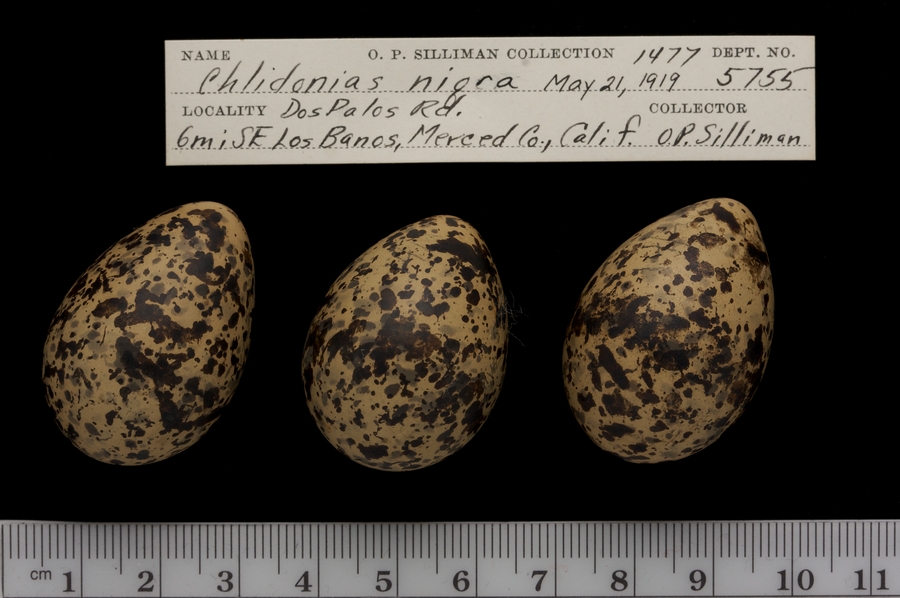 NAME O. P. SILLIMAN COLLECTION 1477 DEPT. NO.
Chlidonias nigra May 21, 1919 5755
LOCALITY Dos Palos Rd. COLLECTOR
6 mi SE Los Banos, Merced Co., Calif. O.P. Silliman
cm 1 2 3 4 5 6 7 8 9 10 11